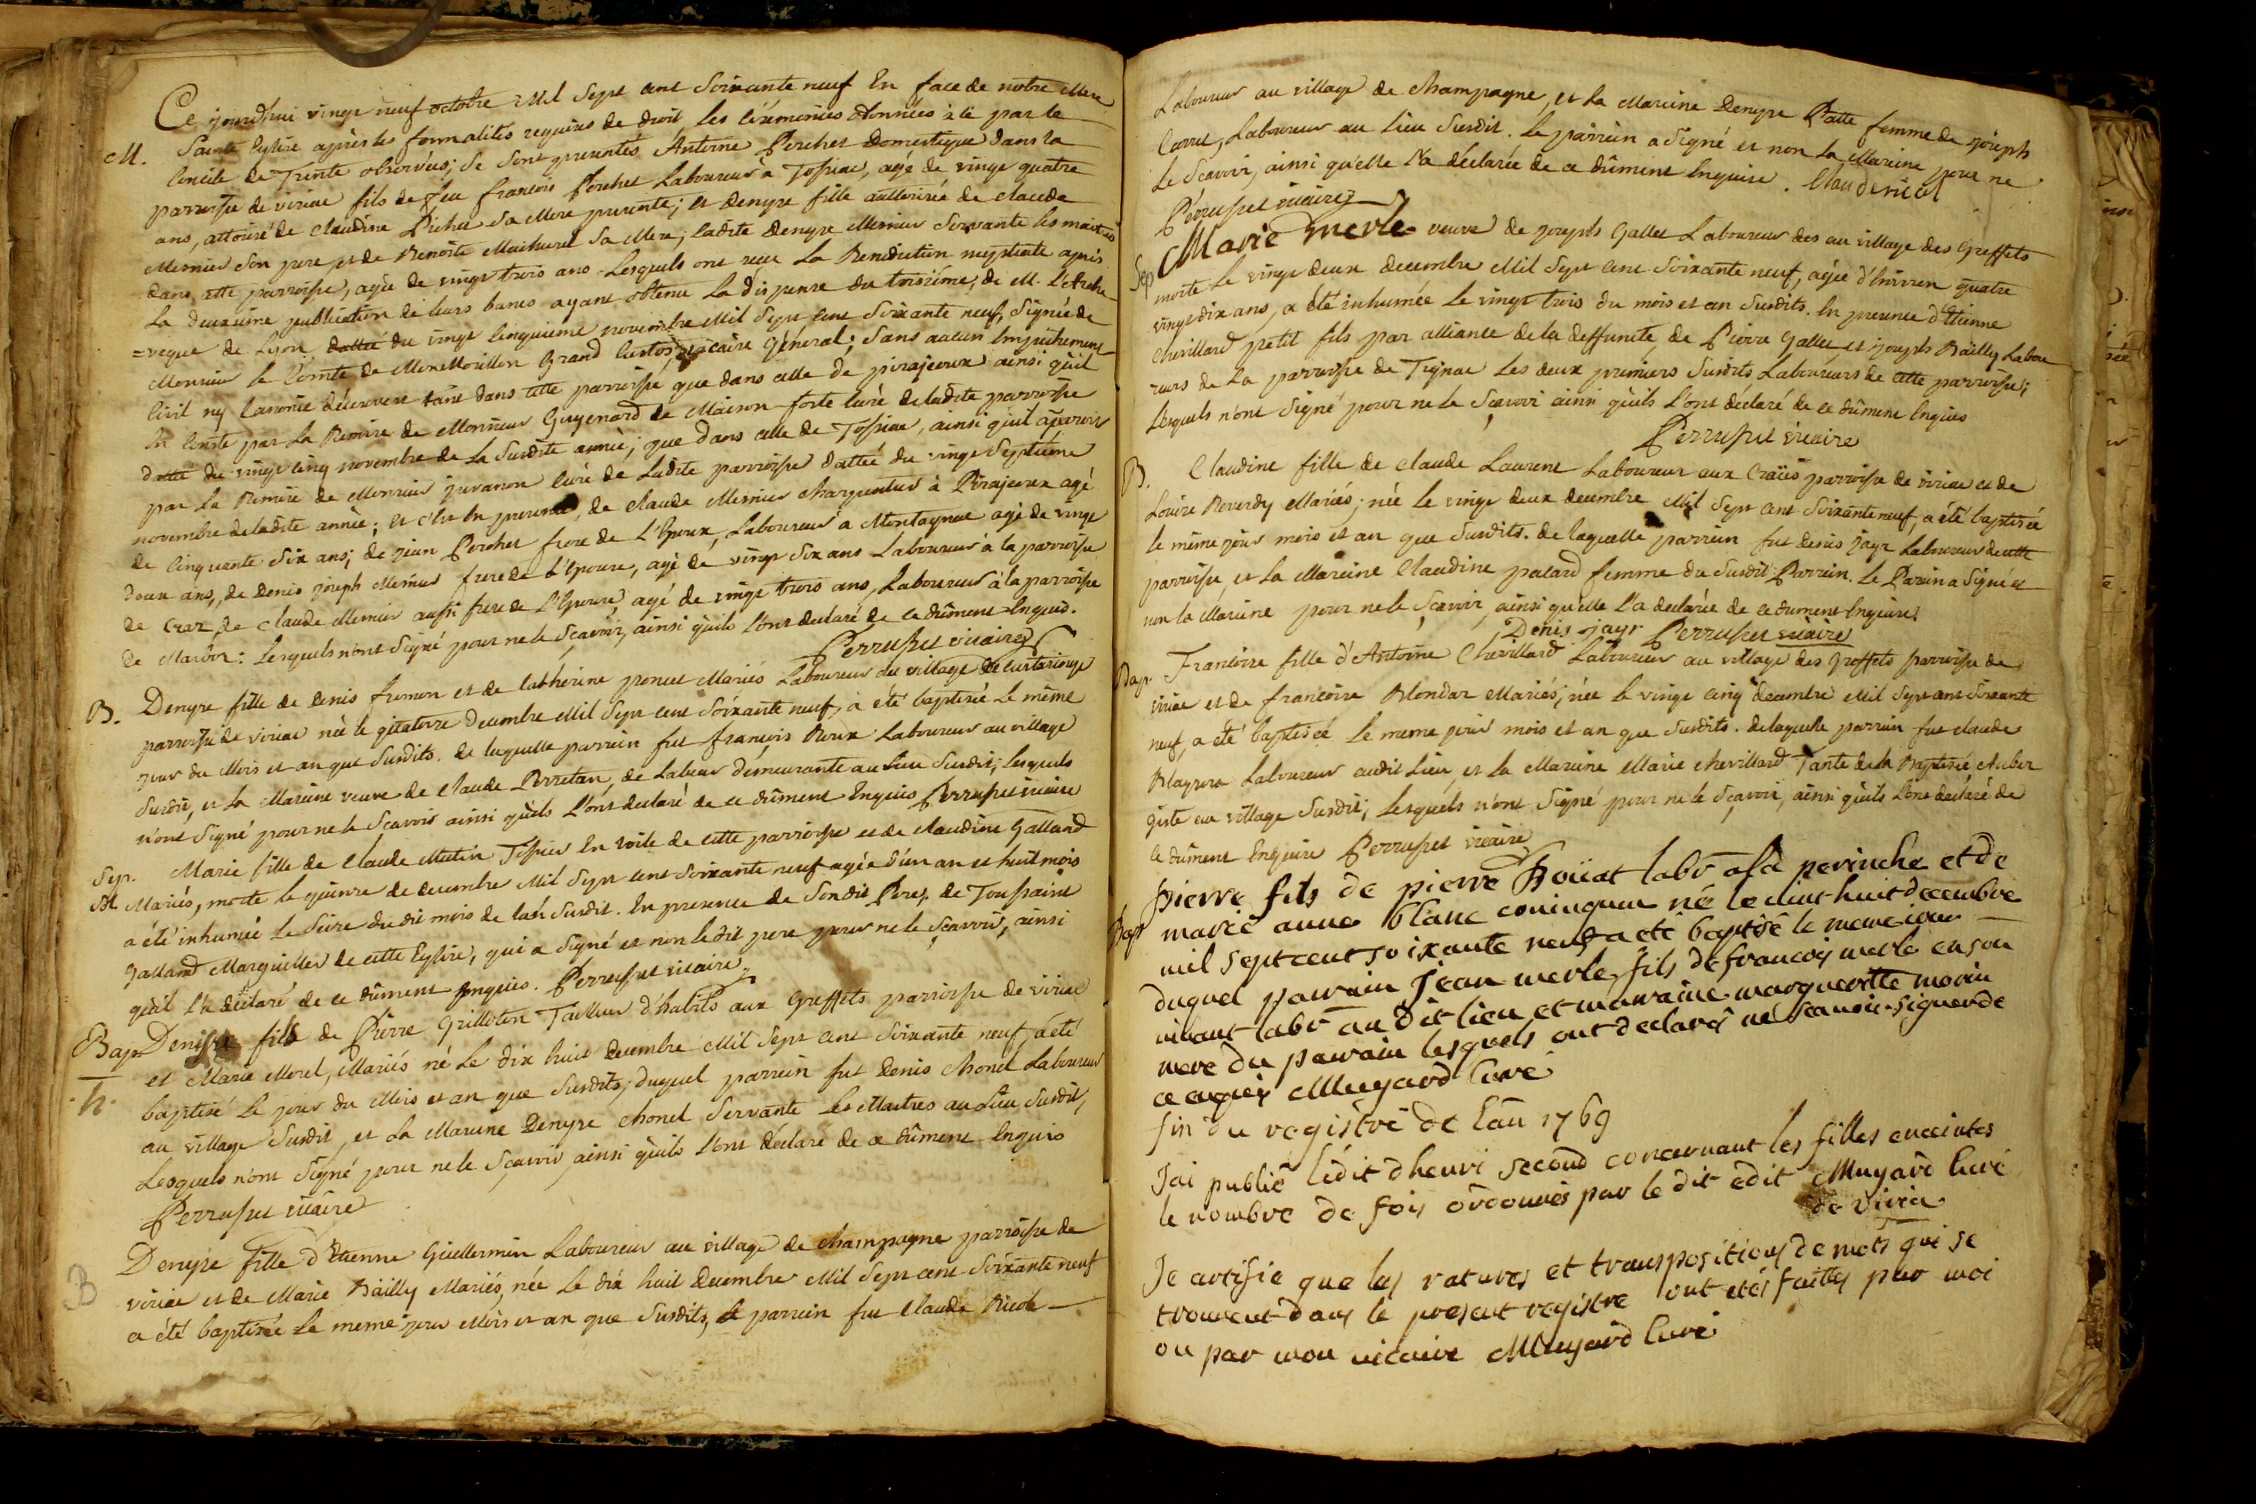 Ce jourdhui vingt neuf octobre Mil Sept cent Soixante neuf En face de notre Mere
M. Sainte Eglise après les formalités requises de droit les cérémonies données par le
Concile de Trente observées; Se Sont presentés Antoine Perchet Domestique dans la
parroisse de viriac fils de feu francois Perchet Laboureur à Tossiac, agé de vingt quatre
ans, attouré de Claudine Pichet Sa Mere presente; et Denyse fille authorisée de claude
Mernier Son pere et de Benoite Machurel Sa Mere; ladite Denyse Mernier Servante les maitres
dans cette parroisse, agée de vingt trois ans. Lesquels ont reçu La Benediction nuptiale après
La deuxieme publication de leurs bancs ayant obtenu la dispense du troisième, de M. l'Arche
=veque de Lyon, dattée du vingt cinquieme novembre Mil Sept cent Soixante neuf, Signée de
Monsieur le Comte de Montmorillon Grand Custos, vicaire Général; Sans aucun Empêchement
Civil ny Canonic découvert tant dans cette parroisse que dans celle de pirajoux ainsi qu'il
En Conste par La Remise de Monsieur Guyenard de Maison forte curé de ladite parroisse
dattée du vingt cinq novembre de La Susdite année; que dans celle de Tossiac, ainsi qu'il apparoit
par La Remise de Monsieur Juvanon curé de Ladite parroisse dattée du vingt Septième
novembre de ladite année; Et c'est En presence, de claude Mernier charpentier à Pirajoux agé
de cinquante Six ans; de jean Perchet frere de L'Epoux, Laboureur à Montagnat agé de vingt
deux ans, de Denis joseph Mernier frere de L'Epouse, agé de vingt Six ans Laboureur à la parroisse
de Craz, de claude Mernier aussi frere de L'Epouse, agé de vingt trois ans, Laboureur à la parroisse
de Marboz: Lesquels n'ont Signé pour ne le Sçavoir, ainsi qu'ils L'ont declaré de ce dûment Enquis.
Perruset vicaire
B. Denyse fille de Denis frumon et de Catherine poncet Mariés Laboureur du village de curtaringe
parroisse de viriac née le quatorze decembre Mil Sept cent Soixante neuf, a été baptisée Le même
jour du Mois et an que Susdits. de laquelle parrein fut françois Roux Laboureur au village
Susdit, et La Mareine veuve de Claude Perretan, de Labeur demeurante au Lieu Susdit; Lesquels
n'ont Signé pour ne le Sçavoir ainsi qu'ils L'ont declaré de ce dûment Enquis Perruset vicaire
Sep. Marie fille de Claude Mutin Tissier En toile de cette parroisse et de claudine Galland
Mariés, morte le quinze de decembre Mil Sept cent Soixante neuf agée d'un an et huit mois
a été inhumée le Seize du dit mois de l'an Susdit. En presence de Sondit Pere, de Toussaint
Galland Marguiller de cette Eglise, qui a Signé et non le dit pere pour ne le Sçavoir, ainsi
qu'il l'a declaré de ce dûment Enquis. Perruset vicaire
Bap Denis fils de Pierre Grillotin Tailleur d'habits aux Greffets parroisse de viriac
et Marie Morel, Mariés né Le dix huit decembre Mil Sept cent Soixante neuf, a été
baptisé Le jour du Mois et an que Susdits, duquel parrein fut Denis Chonel Laboureur
au village Susdit, et La Mareine Denyse Chonel Servante Les Maitres au Lieu Susdit,
Lesquels n'ont Signé pour ne le Sçavoir, ainsi qu'ils L'ont déclaré de ce dûment Enquis
Perruset vicaire
B Denyse fille d'Etienne Guillermin Laboureur au village de champagne parroisse de
viriac et de Marie Bailly Mariés, née Le dix huit decembre Mil Sept cent Soixante neuf
a été baptisée Le meme jour Mois et an que Susdits, Le parrein fut Claude Nicol
Laboureur au village de champagne, et La Mareine Denyse Patte femme de joseph
Carret, Laboureur au Lieu Susdit. Le parrein a Signé et non La Mareine pour ne
Le Scavoir, ainsi qu'elle L'a déclarée de ce dûment Enquise. Claude nicol
Perruset vicaire
Sep Marie Merle veuve de joseph Gallet Laboureur des au village des Greffets
morte Le vingt deux decembre Mil Sept cent Soixante neuf, agée d'environ quatre
vingt dix ans, a été inhumée Le vingt trois du mois et an Susdits. En presence d'Etienne
Chevillard petit fils par alliance de la deffunte, de Pierre Gallet et joseph Bailly Labou
reurs de La parroisse de Tignat Les deux premiers Susdits Laboureurs de cette parroisse;
Lesquels n'ont Signé pour ne le Sçavoir ainsi qu'ils L'ont déclaré de ce dûment Enquis
Perruset vicaire
B. Claudine fille de Claude Laurent Laboureur aux Craües parroisse de viriac et de
Louise Reverdy Mariés; née Le vingt deux decembre Mil Sept cent Soixante neuf, a été baptisée
le même jour mois et an que Susdits. de laquelle parrein fut Denis Jayr Laboureur de cette
parroisse, et La Mareine Claudine patard femme du Susdit Parrein. Le Parein a Signé et
non la Mareine pour ne le Sçavoir, ainsi qu'elle L'a declarée de ce dument Enquise
Denis jayr Perruset vicaire
Bap. Francoise fille d'Antoine Chevillard Laboureur au village des Greffets parroisse de
viriac et de francoise Blondar Mariés; née le vingt cinq decembre Mil Sept cent Soixante
neuf, a été baptisée Le meme jour mois et an que Susdits. de laquelle parrein fut claude
Blayron Laboureur audit Lieu, et La Mareine Marie chevillard Tante de la Baptisée Auber
giste au village Susdit; Lesquels n'ont Signé pour ne le Sçavoir, ainsi qu'ils L'ont declaré de
ce dûment Enquise Perruset vicaire
Bapt pierre fils de pierre Boüat labr a la perinche et de
marie anne blanc conjugues né le vint huit decembre
mil sept cent soixante neuf a eté baptisé le meme jour
duquel parrain Jean merle, fils de francois merle en son
vivant labr au dit lieu et marraine margueritte morin
mere du parrain lesquels ont declarés ne scanoir signer de
ce enquis Muyard Curé
fin du registre de l'an 1769
J'ai publié l'édit d'henri second concernant les filles enceintes
le nombre de fois ordonnés par le dit edit Muyard Curé
de viria
Je certifie que les ratures et transpositions de mots qui se
trouvent dans le present registre ont etés faittes par moi
ou par mon vicaire Muyard Curé